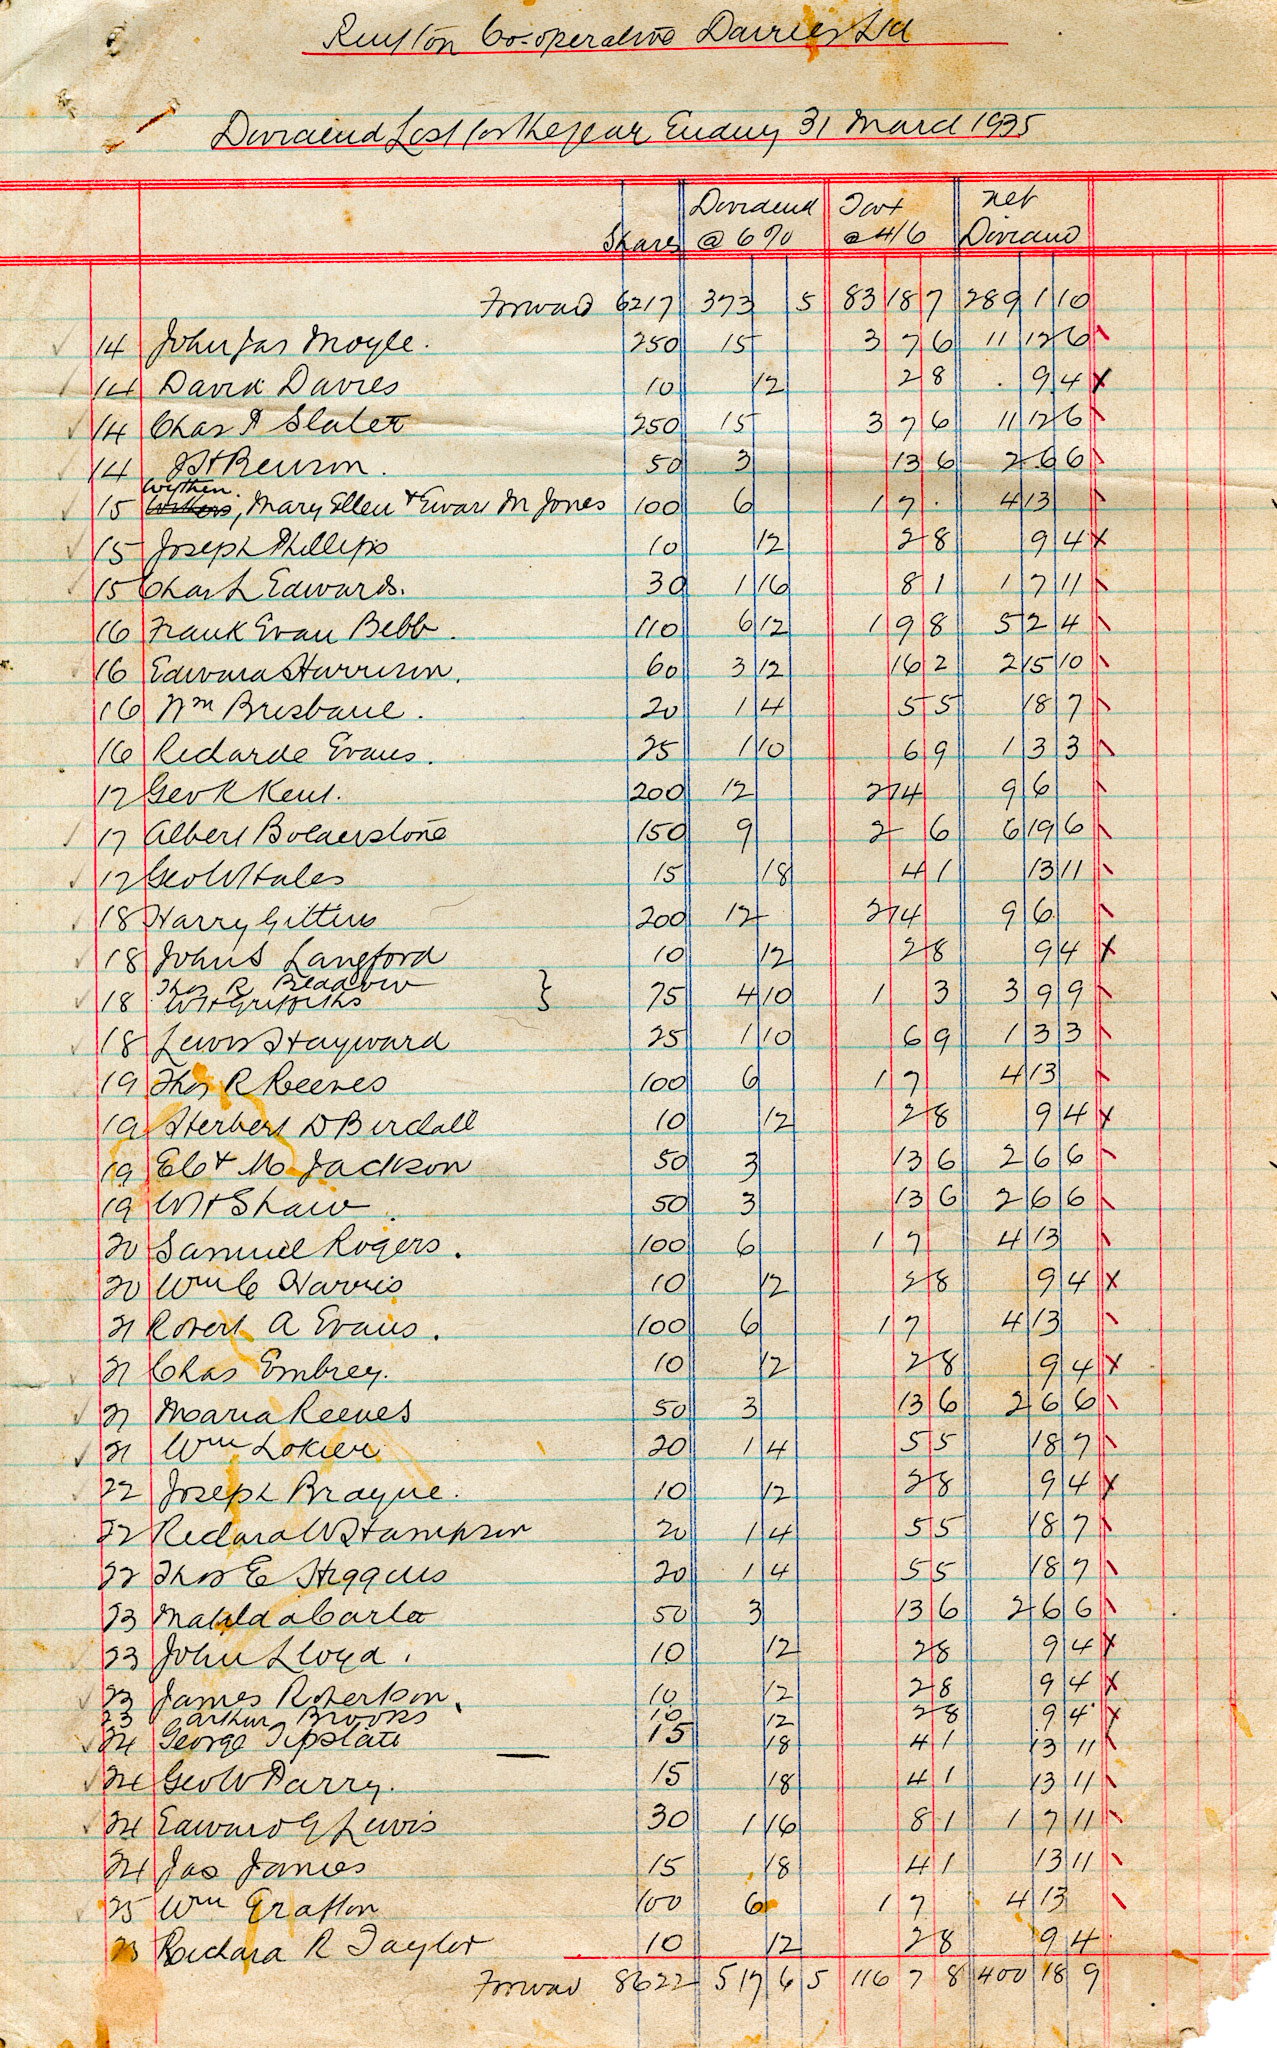 Ruyton Co-operative Dairies Ltd
Dividend List for the year Ending 31 March 1935
Shares Dividend @ 6% Tax @ 4/6 Net Dividend
Forward 6217 373 5 83 18 7 289 1 10
14 John Jas Moyle. 250 15 3 7 6 11 12 6
14 David Davies 10 12 2 8 9 4 x
14 Chas P Slater 250 15 3 7 6 11 12 6
14 J H Benson. 50 3 13 6 2 6 6
Wythen.
15 Withers, Mary Ellen & Ewar M Jones 100 6 1 7 . 4 13
15 Joseph Phillips 10 12 2 8 9 4 x
15 Chas L Edwards. 30 1 16 8 1 1 7 11
16 Frank Evan Bebb. 110 6 12 1 9 8 5 2 4
16 Edward Harrison. 60 3 12 16 2 2 15 10
16 Wm Brisbane. 20 1 4 5 5 18 7
16 Richard Evans. 25 1 10 6 9 1 3 3
17 Geo R Kent. 200 12 2 14 9 6
17 Albert Bolderstone 150 9 2 6 6 19 6
17 Geo W Hales 15 18 4 1 13 11
18 Harry Gittins 200 12 2 14 9 6
18 John S Langford 10 12 2 8 9 4 x
Thos R Beddow
18 W H Griffiths } 75 4 10 1 3 3 9 9
18 Lewis Hayward 25 1 10 6 9 1 3 3
19 Thos R Reeves 100 6 1 7 4 13
19 Herbert D Birdall 10 12 2 8 9 4 x
19 E C & M Jackson 50 3 13 6 2 6 6
19 W H Shaw. 50 3 13 6 2 6 6
20 Samuel Rogers. 100 6 1 7 4 13
20 Wm C Harris 10 12 2 8 9 4 x
21 Robert A Evans. 100 6 1 7 4 13
21 Chas Embrey. 10 12 2 8 9 4 x
21 Maria Reeves 50 3 13 6 2 6 6
21 Wm Lokier 20 1 4 5 5 18 7
22 Joseph Brayne. 10 12 2 8 9 4 x
22 Richard W Hampson 20 1 4 5 5 18 7
22 Thos E Higgins 20 1 4 5 5 18 7
23 Matilda Carter 50 3 13 6 2 6 6
23 John Lloyd. 10 12 2 8 9 4 x
23 James Robertson. 10 12 2 8 9 4 x
23 Arthur Brooks 10 12 2 8 9 4 x
24 George Tipstatt 15 18 4 1 13 11
24 Geo W Parry. 15 18 4 1 13 11
24 Edward G Lewis 30 1 16 8 1 1 7 11
24 Jas James 15 18 4 1 13 11
25 Wm Grafton 100 6 1 7 4 13
25 Richard R Taylor 10 12 2 8 9 4
Forward 8622 517 6 5 116 7 8 400 18 9